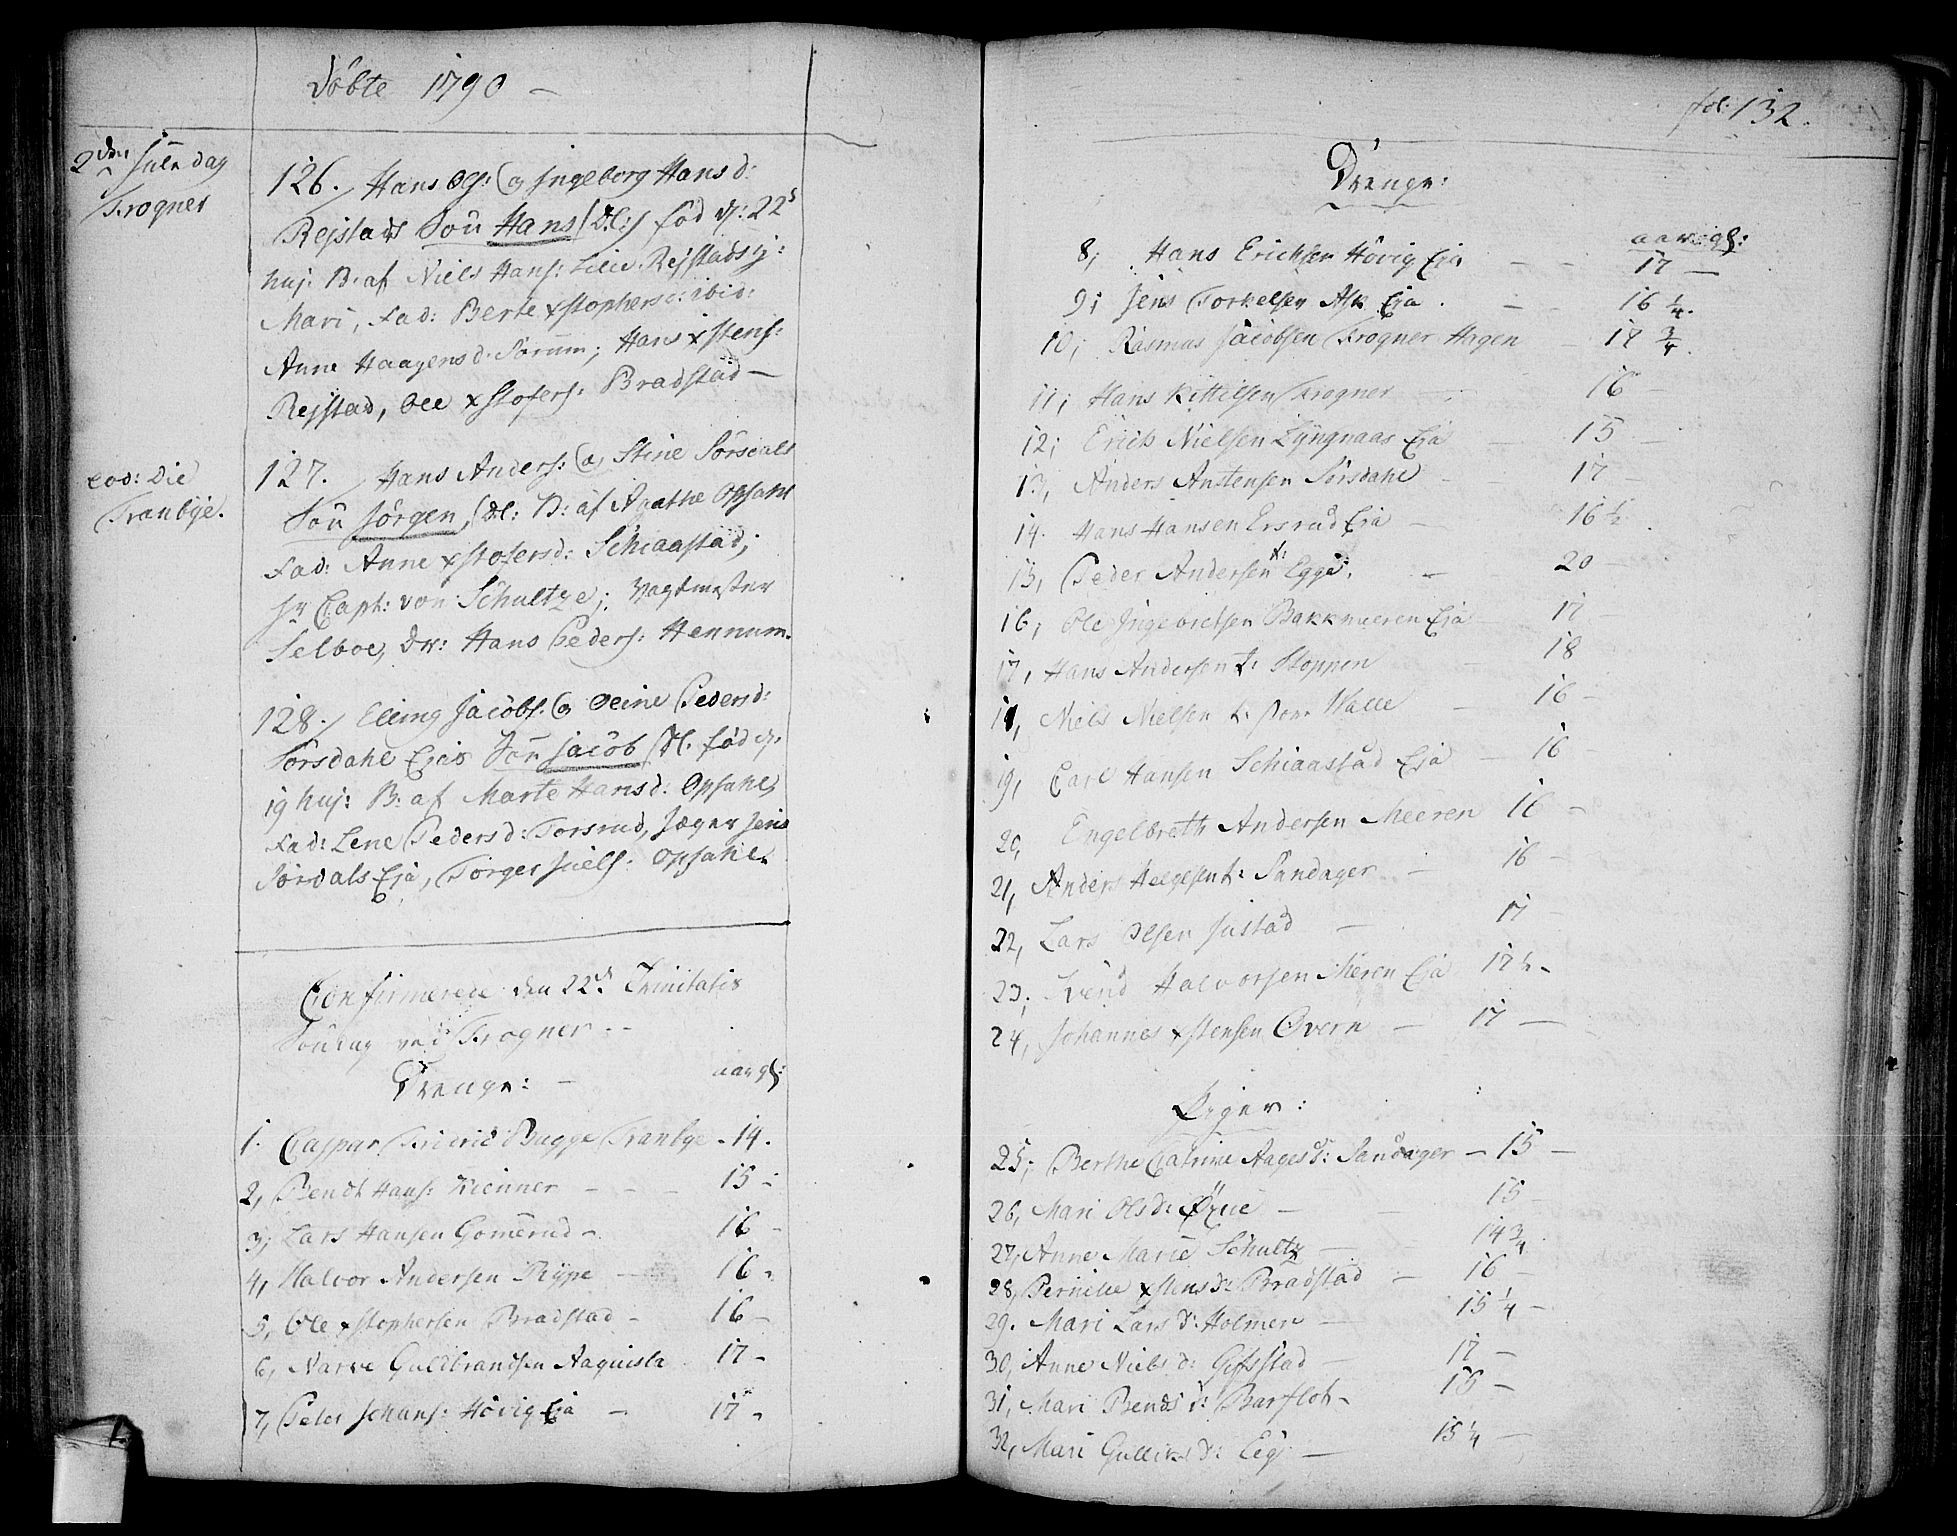 Døbte 1790 —
2den Juledag
Frogner
126. Hans Ols: og Ingeborg Hansd:
Rejstads Søn Hans (Dl:) fød d: 22d
huj: B: af Niels Hans: Lille Rejstads
Mari, Fad: Berte xstophersd: ibid:
Anne Haagensd: Sørum; Hans xstens:
Rejstad, Ole xstofers: Bradstad —
eod: Die
Tranbye.
127. Hans Anders: og Stine Sørsdals
Søn Jørgen, (Dl: B: af Agathe Opsahl
Fad: Anne xstofersd: Schiaastad;
Hr Capt: von Schultze; Vagtmester
Selboe, Dr: Hans Peders: Hennum.
128. Elling Jacobs: og Oline Pedersd:
Sørsdahl Ejes Søn Jacob (Dl. fød d.
19 huj: B: af Marte Hansd: Opsahl,
Fad: Lene Pedersd: Torsrud, Jæger Jens
Sørdals Eja, Torger Juels: Opsahl.
Confirmerede den 22d Trinitatis
Søndag ved Frogner --
Drenge: — aar gl:
1. Caspar Fridric Bugge Tranbye - 14.
2, Bendt Hans: Kienner - - - 15 -
3, Lars Hansen Gomerud - 16 -
4, Halvor Andersen Rype — 16 -
5, Ole xstophersen Bradstad - 16 -
6, Narve Guldbrandsen Aaquisla 17 -
7, Peter Johans: Høvig Eja — 17 -
fol: 132.
Drenge:
aar gl:
8, Hans Erichsen Høvig Eja — — 17 —
9, Jens Torkelsen Ask Eja . — 16 1/4.
10, Rasmus Jacobsen Frogner Hagen — 17 3/4.
11, Hans Kittilsen Frogner — 16 —
12, Erich Nielsen Lyngaas Eja — 15 —
13, Anders Anstensen Sørsdahl — 17 —
14. Hans Hansen Ersrud Eja — 16 1/2
15, Peder Andersen t: Egge. — 20 —
16, Ole Ingebretsen Bakkmeeren Eja — 17 —
17, Hans Andersen t: Stoppen — 18
18, Niels Nielsen t: Walle — 16 —
19, Carl Hansen Schiaastad Eja — 16 —
20, Engelbreth Andersen Meeren 16 —
21, Anders Helgesen t: Sandager — 16 —
22, Lars Olsen Justad — 17 —
23, Svend Halvorsen Meren Eja 17 1/2 -
24, Johannes xstensen Overn — 17 —
Piger:
25, Berthe Catrine Aagesd: Sandager — 15 —
26, Mari Olsd: — — 15 —
27, Anne Marie Schultz — 14 3/4
28, Pernille xstensd: Bradstad — 16 —
29. Mari Larsd: Holmen — 15 1/4 —
30, Anne Nielsd: Gifsstad — 17 —
31, Mari Bendsd: Barflot - 16 —
32, Mari Gulliksd: Eeg — 15 1/4 —